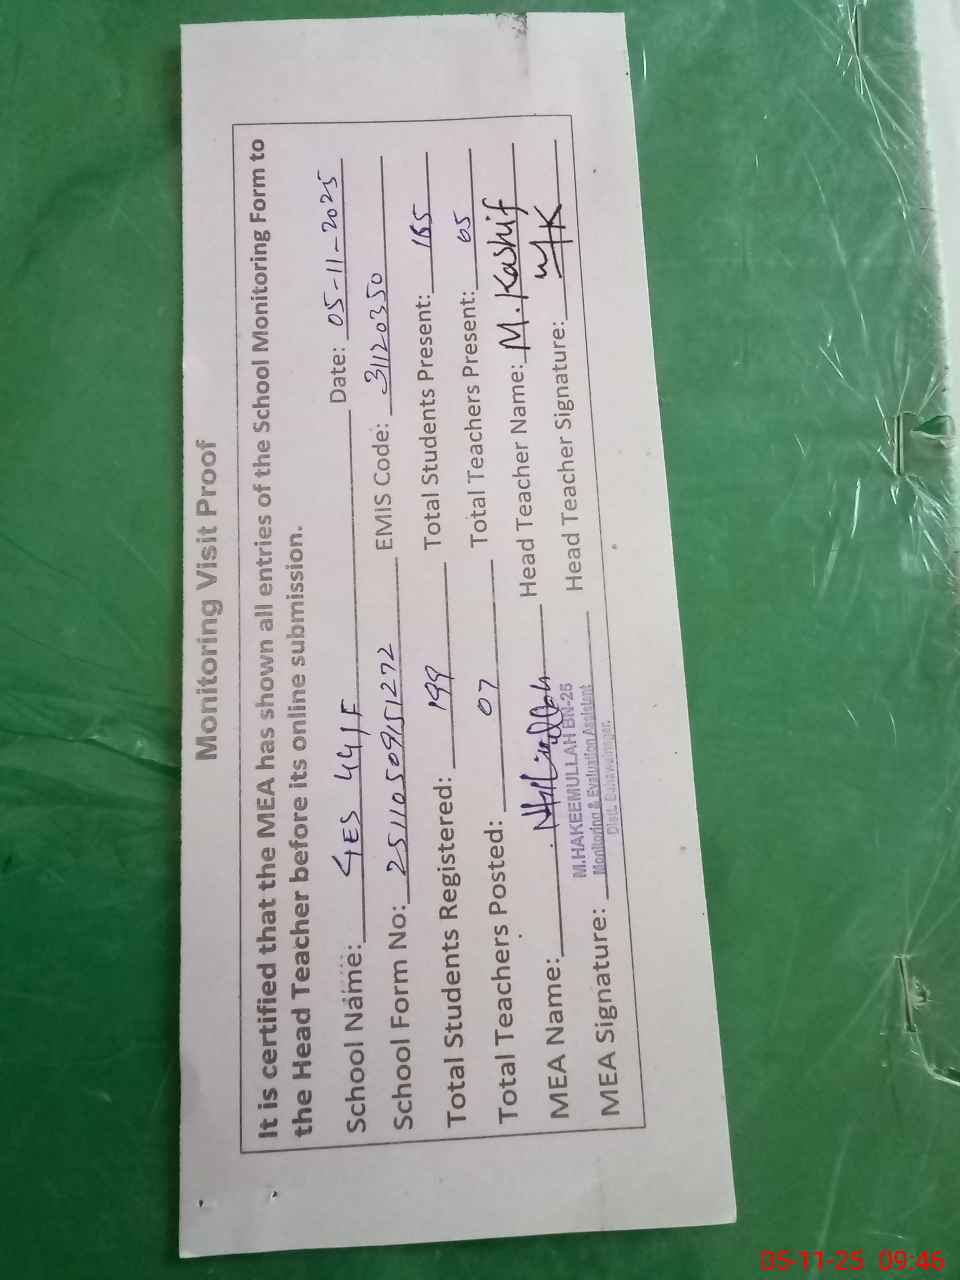 Monitoring Visit Proof
It is certified that the MEA has shown all entries of the School Monitoring Form to
the Head Teacher before its online submission.
School Name: GES 441F Date: 05-11-2025
School Form No: 2511050915 1272 EMIS Code: 31120350
Total Students Registered: 199 Total Students Present: 165
Total Teachers Posted: 07 Total Teachers Present: 05
MEA Name: Head Teacher Name: M. Kashif
MEA Signature: Head Teacher Signature: MK
M.HAKEEMULLAH BN-25
Monitoring & Evaluation Assistent
Distt. Bahawalnagar.
05-11-25 09:46